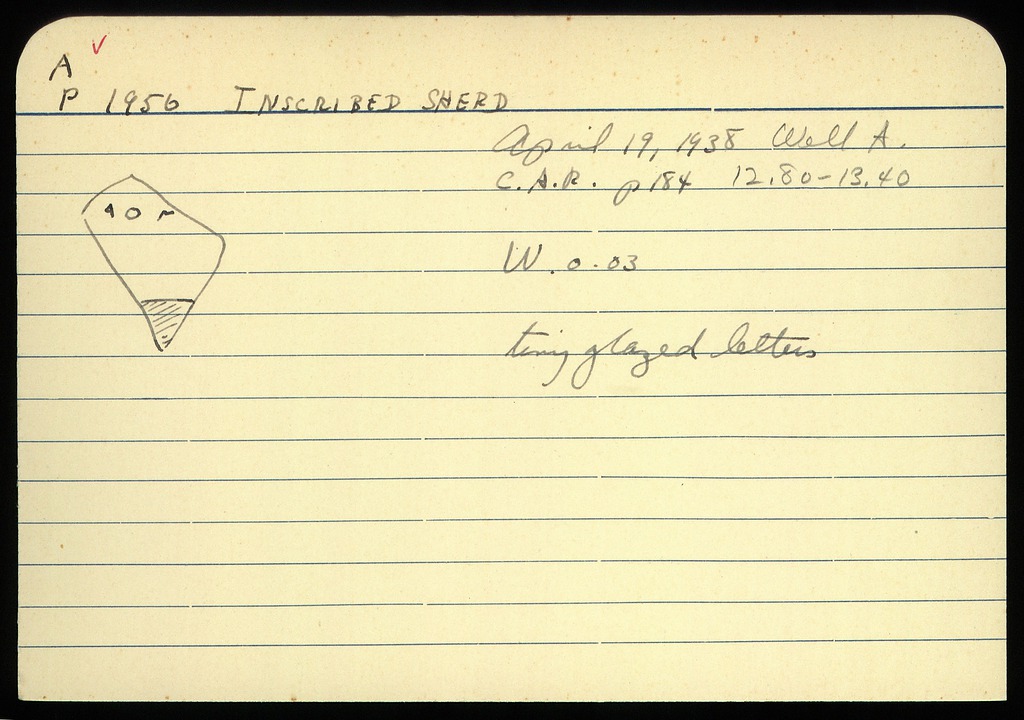 A
P 1956 INSCRIBED SHERD
April 19, 1938 Well A.
C.A.R. p 184 12.80-13.40
W. 0.03
tiny glazed letters